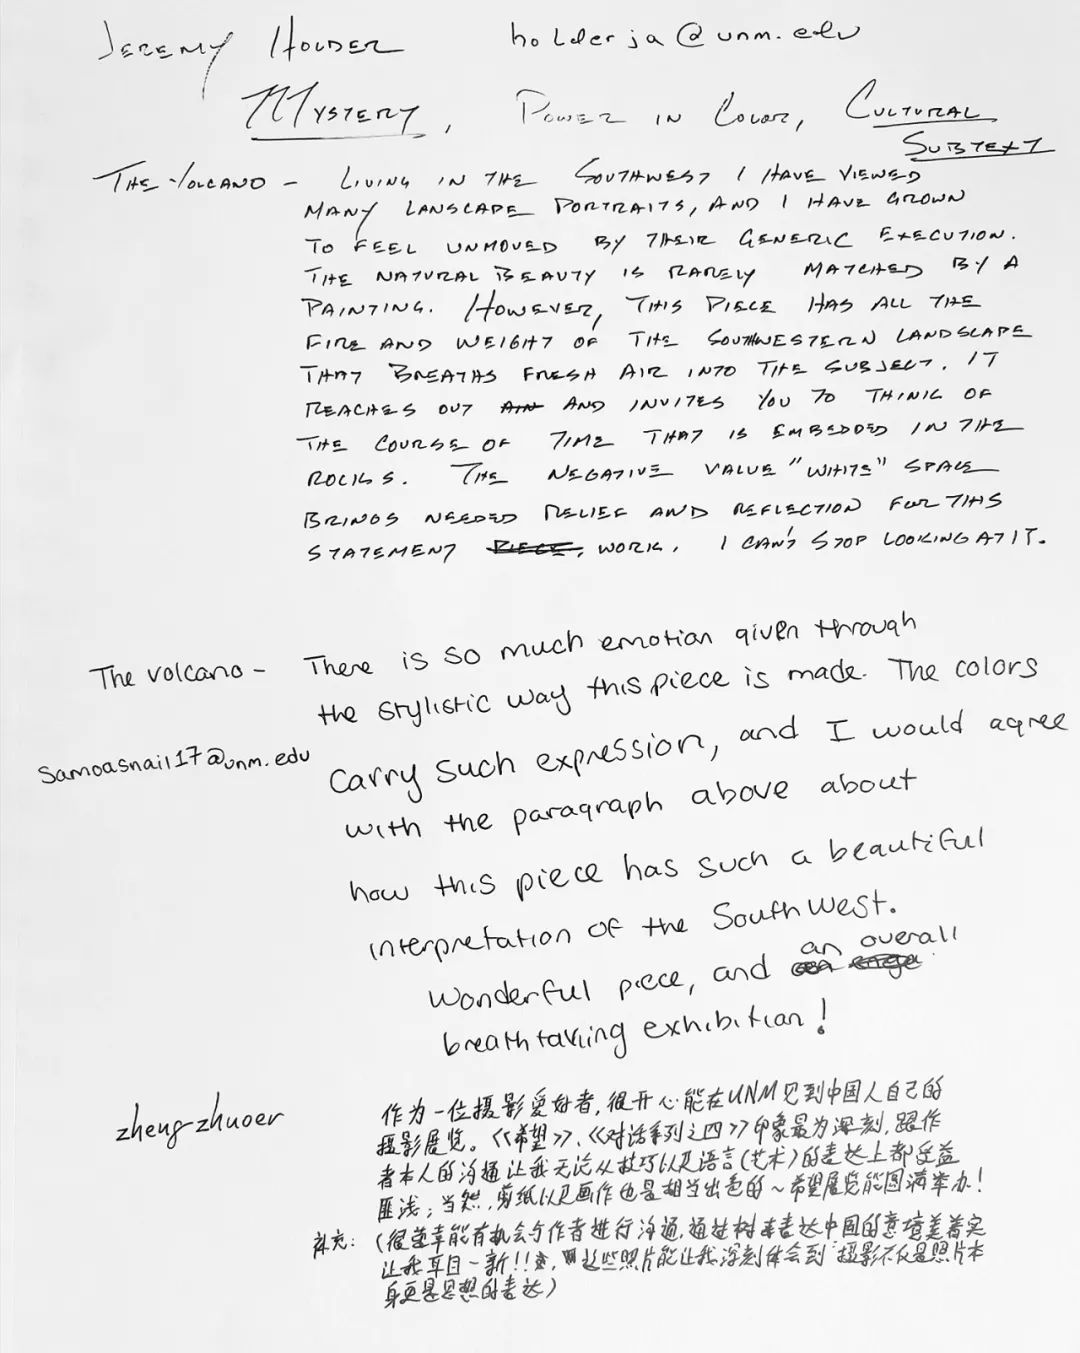 JEREMY HOLDER holderja@unm.edu
MYSTERY, POWER IN COLOR, CULTURAL
SUBTEXT
THE VOLCANO - LIVING IN THE SOUTHWEST I HAVE VIEWED
MANY LANSCAPE PORTRAITS, AND I HAVE GROWN
TO FEEL UNMOVED BY THEIR GENERIC EXECUTION.
THE NATURAL BEAUTY IS RARELY MATCHED BY A
PAINTING. HOWEVER, THIS PIECE HAS ALL THE
FIRE AND WEIGHT OF THE SOUTHWESTERN LANDSCAPE
THAT BREATHS FRESH AIR INTO THE SUBJECT. IT
REACHES OUT AND INVITES YOU TO THINK OF
THE COURSE OF TIME THAT IS EMBEDDED IN THE
ROCKS. THE NEGATIVE VALUE "WHITE" SPACE
BRINGS NEEDED RELIEF AND REFLECTION FOR THIS
STATEMENT PIECE, WORK. I CAN'T STOP LOOKING AT IT.
The volcano - There is so much emotion given through
the stylistic way this piece is made. The colors
samoasnail17@unm.edu carry such expression, and I would agree
with the paragraph above about
how this piece has such a beautiful
interpretation of the SouthWest.
Wonderful piece, and an overall
breathtaking exhibition!
zhengzhuoer 作为一位摄影爱好者,很开心能在UNM见到中国人自己的
摄影展览。《希望》、《对话系列之四》印象最为深刻,跟作
者本人的沟通让我无论从技巧以及语言(艺术)的表达上都受益
匪浅;当然,剪纸以及画作也是相当出色的~希望展览能圆满举办!
补充:(很荣幸能有机会与作者进行沟通,通过树来表达中国的意境美着实
让我耳目一新!!,这些照片能让我深刻体会到 摄影不仅是照片本
身更是思想的表达)